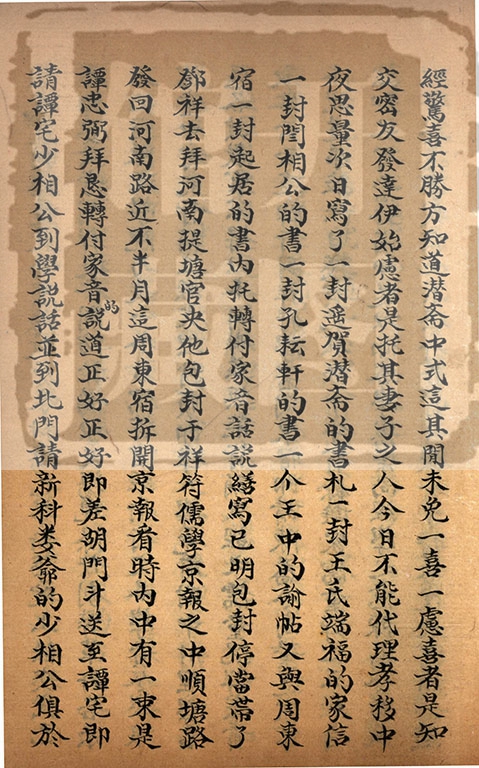 經驚喜不勝方知道潜斋中式這其閒未免一喜一慮喜者是知
交密友發達伊始慮者是托其妻子之人今日不能代理孝移中
夜思量次日寫了一封遥賀潜斋的書札一封王氏端福的家信
一封閆相公的書一封孔耘軒的書一个王中的諭帖又與周東
宿一封起居的書内托轉付家音話說繕寫已明包封停當帶了
鄧祥去拜河南提塘官央他包封于祥符儒學京報之中順塘路
發回河南路近不半月這周東宿拆開京報看時内中有一束是
譚忠弼拜恳轉付家音的說道正好正好即差胡門斗送至譚宅即
請譚宅少相公到學說話並到北門請新科娄爺的少相公俱於